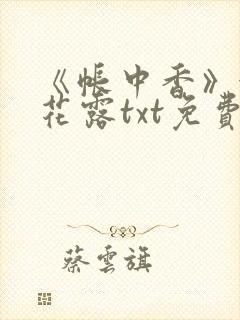 《帐中香》
花露txt免費
蔡雲旗